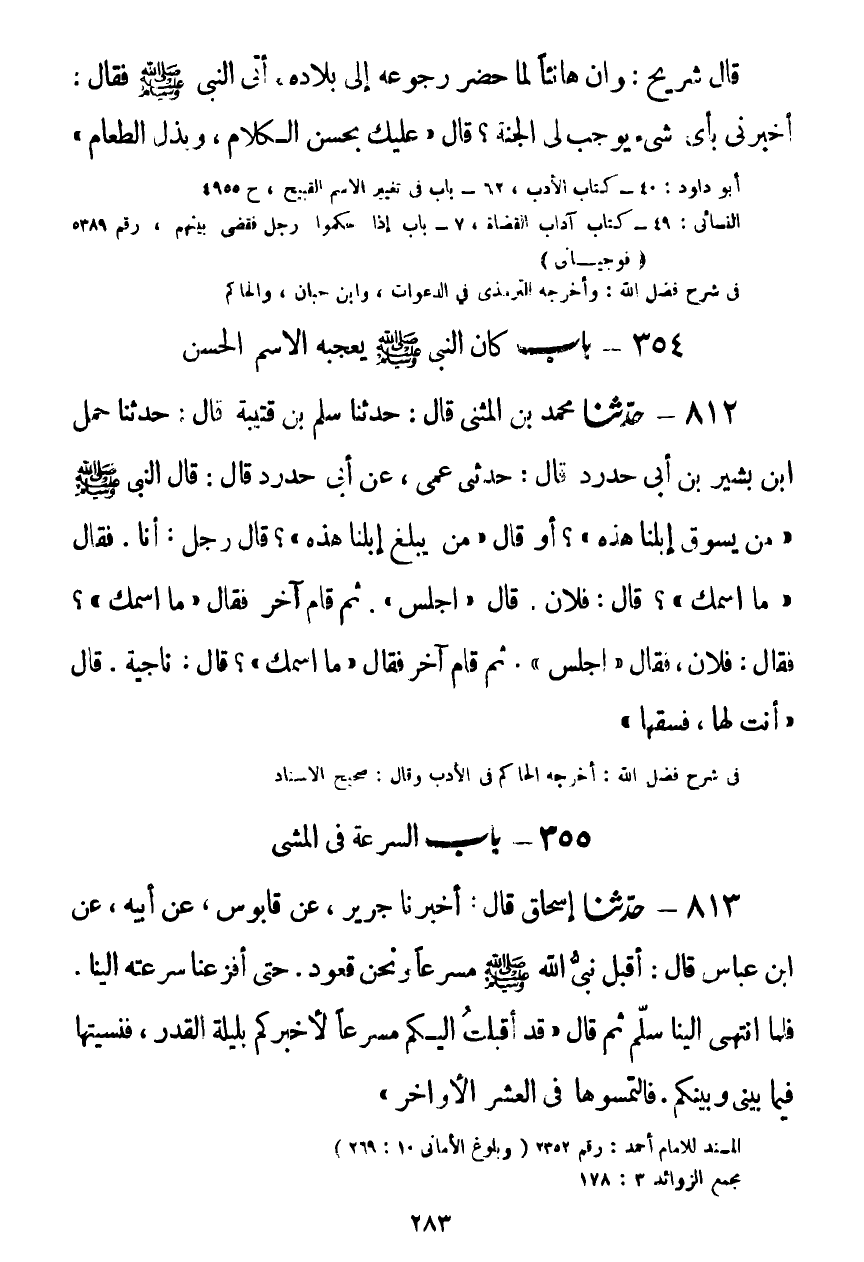 قال شريح : وان هانئاً لما حضر رجوعه إلى بلاده، أتى النبى ﷺ فقال :
أخبرنى بأى شىء يوجب لى الجنة ؟ قال « عليك بحسن الـكلام ، وبذل الطعام »
أبو داود : ٤٠ ــ كتاب الأدب ، ٦٢ ــ باب فى تغيير الاسم القبيح ، ح ٤٩٥٥
النسائى : ٤٩ ــ كتاب آداب القضاة ، ٧ ــ باب إذا حكموا رجل فقضى بينهم ، رقم ٥٣٨٩
( فوجيــانى )
فى شرح فضل الله : وأخرجه الترمذى في الدعوات ، وابن حبان ، والحاكم
٣٥٤ -- باب كان النبى ﷺ يعجبه الاسم الحسن
٨١٢ – حدّثنا محمد بن المثنى قال : حدثنا سلم بن قتيبة قال : حدثنا حمل
ابن بشير بن أبى حدرد قال : حدثى عمى ، عن أبى حدرد قال : قال النبى ﷺ
« من يسوق إبلنا هذه » ؟ أو قال « من يبلغ إبلنا هذه » ؟ قال رجل : أنا . فقال
« ما اسمك » ؟ قال : فلان . قال « اجلس » . ثم قام آخر فقال « ما اسمك » ؟
فقال : فلان ، فقال « اجلس » . ثم قام آخر فقال « ما اسمك » ؟ قال : ناجية . قال
« أنت لها ، فسقها »
فى شرح فضل الله : أخرجه الحاكم فى الأدب وقال : صحيح الاسناد
٣٥٥ – باب السرعة فى المشى
٨١٣ – حدّثنا إسحاق قال : أخبرنا جرير ، عن قابوس ، عن أبيه ، عن
ابن عباس قال : أقبل نبىُّ الله ﷺ مسرعاً ونحن قعود . حتى أفزعنا سرعته الينا .
فلما انتهـى الينا سلّم ثم قال « قد أقبلتُ اليـكم مسرعاً لأخبركم بليلة القدر ، فنسيتها
فيما بينى وبينكم . فالتمسوها فى العشر الأواخر »
المسند للامام أحمد : رقم ٢٣٥٢ ( وبلوغ الأمانى ١٠ : ٢٦٩ )
مجمع الزوائد ٣ : ١٧٨
٢٨٣